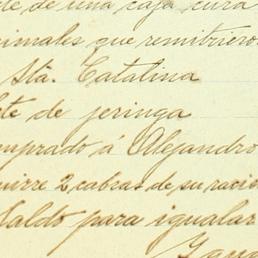 te de una caja cura
nimales que remitieron
Sta. Catalina
te de jeringa
mprado á Alejandro
uirre 2 cabras de su racio
Saldo para igualar